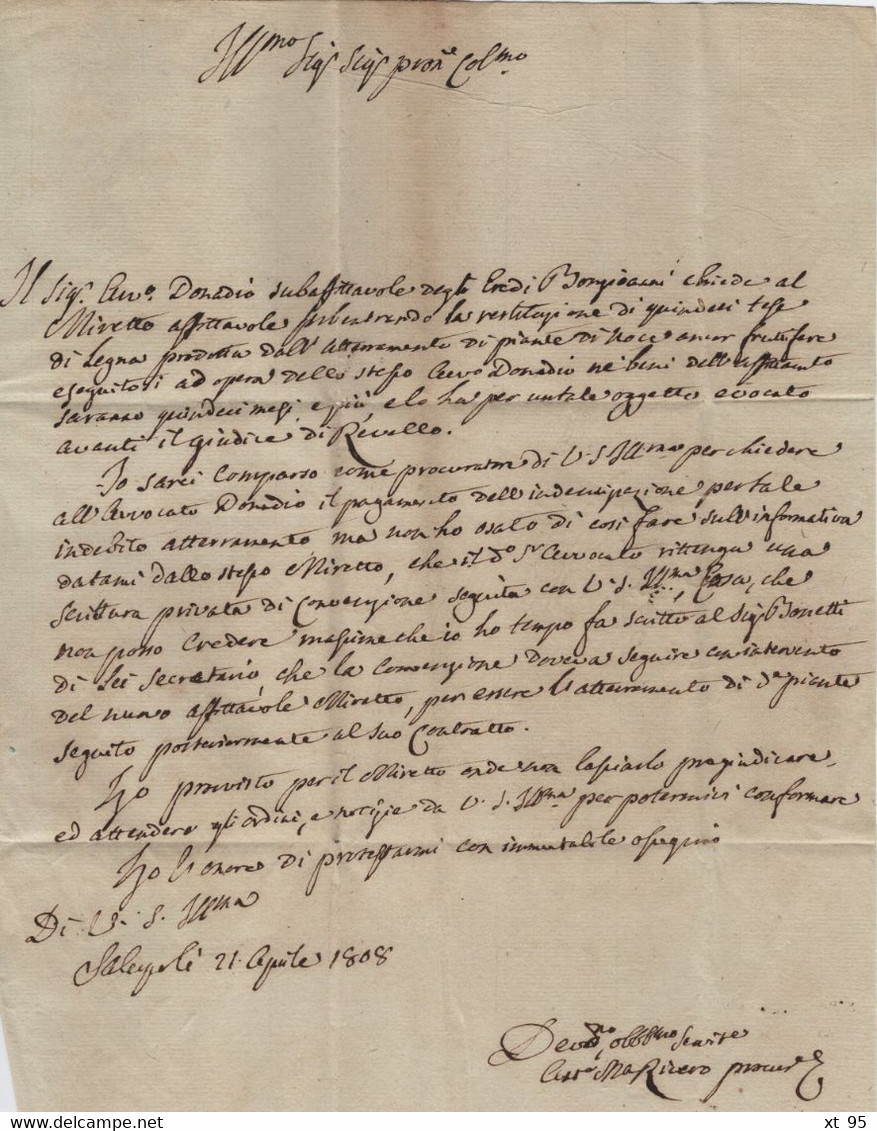 Ill.mo Sig.r Sig.r pron.e Col.mo
Il Sig.r Avv.o Donadio subaffittavole degli Eredi Bongioanni chiede al
Miretto affittavole subentrando la restituzione di quindeci tese
di legna prodotta dall'atterramento di piante di noce ancor fruttifere
eseguitosi ad opera dello stesso Avvo Donadio ne beni dell'affittamento
saranno quindeci mesi e più, e lo ha per un tale oggetto evocato
avanti il giudice di Revello.
Io sarei comparso come procuratore di V. S. Ill.ma per chiedere
all'Avvocato Donadio il pagamento dell'indennizazione per tale
indebito atterramento ma non ho osato di così fare sull'informativa
datami dallo stesso Miretto, che il d.o S.r Avvocato rittenga una
scrittura privata di convenzione seguita con V. S. Ill.ma, Cosa, che
non posso credere massime che io ho tempo fa scritto al Sig.r Bonetti
di Lei Secretario, che la Convenzione doveva seguire con intervento
del nuovo affittavole Miretto, per essere l'atterramento di d.e piante
seguito posteriormente al suo Contratto.
Ho provvisto per il Miretto onde non lasciarlo pregiudicare,
ed attendere gli ordini, e notizie da V. S. Ill.ma per potermici conformare
Ho l'onore di protestarmi con immutabile ossequio
Di V. S. Ill.ma
Saluzzo li 21. Aprile 1808
Dev.mo, obbl.mo Servit.e
Ricero procur.e
xt 95